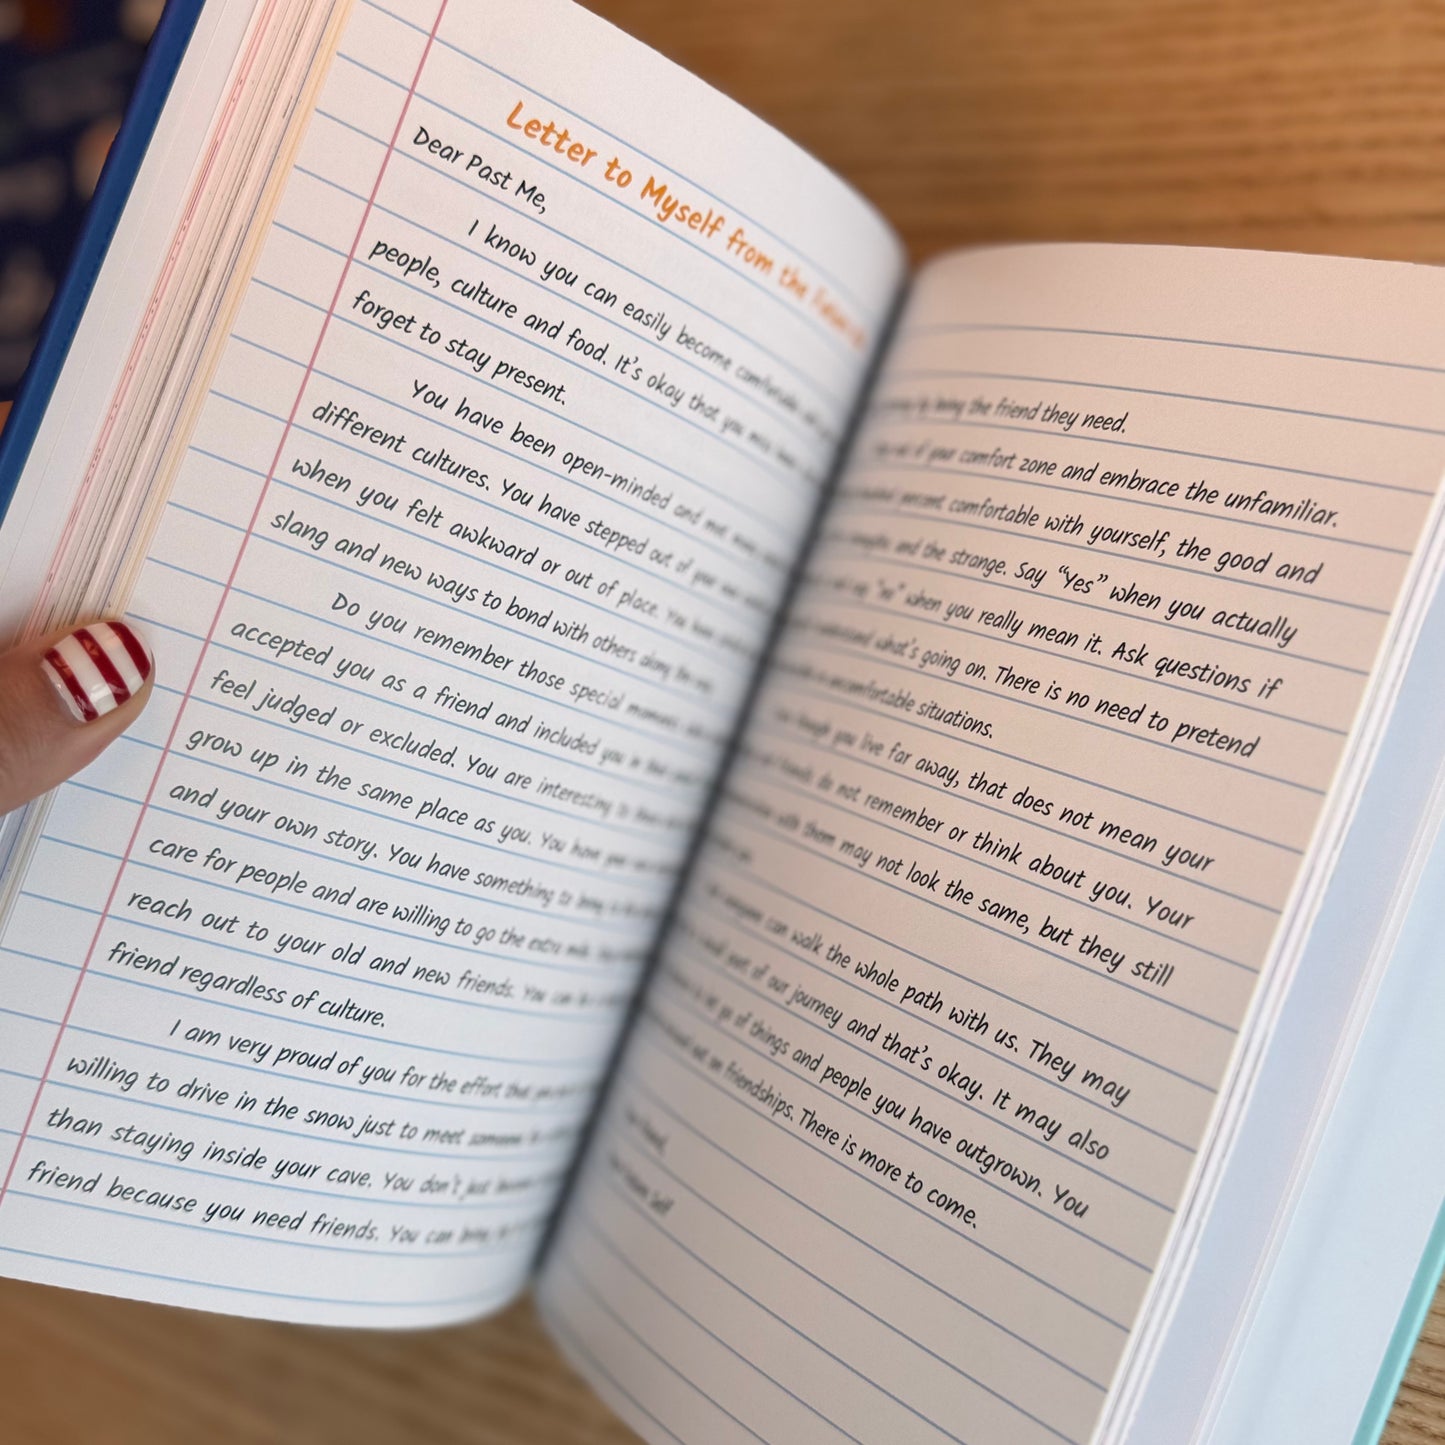 Letter to Myself from the Future
Dear Past Me,
I know you can easily become comfortable
people, culture and food. It's okay that you miss
forget to stay present.
You have been open-minded and met many
different cultures. You have stepped out of your own
when you felt awkward or out of place. You have
slang and new ways to bond with others along the way.
Do you remember those special moments
accepted you as a friend and included you in their
feel judged or excluded. You are interesting to
grow up in the same place as you. You have your own
and your own story. You have something to bring to the
care for people and are willing to go the extra mile.
reach out to your old and new friends. You can be a
friend regardless of culture.
I am very proud of you for the effort that you
willing to drive in the snow just to meet someone
than staying inside your cave. You don't just
friend because you need friends. You can bring
by being the friend they need.
out of your comfort zone and embrace the unfamiliar.
percent comfortable with yourself, the good and
and the strange. Say “Yes” when you actually
say “no” when you really mean it. Ask questions if
understand what's going on. There is no need to pretend
in uncomfortable situations.
though you live far away, that does not mean your
friends do not remember or think about you. Your
with them may not look the same, but they still
everyone can walk the whole path with us. They may
small part of our journey and that's okay. It may also
let go of things and people you have outgrown. You
out on friendships. There is more to come.
Your friend,
Future Self